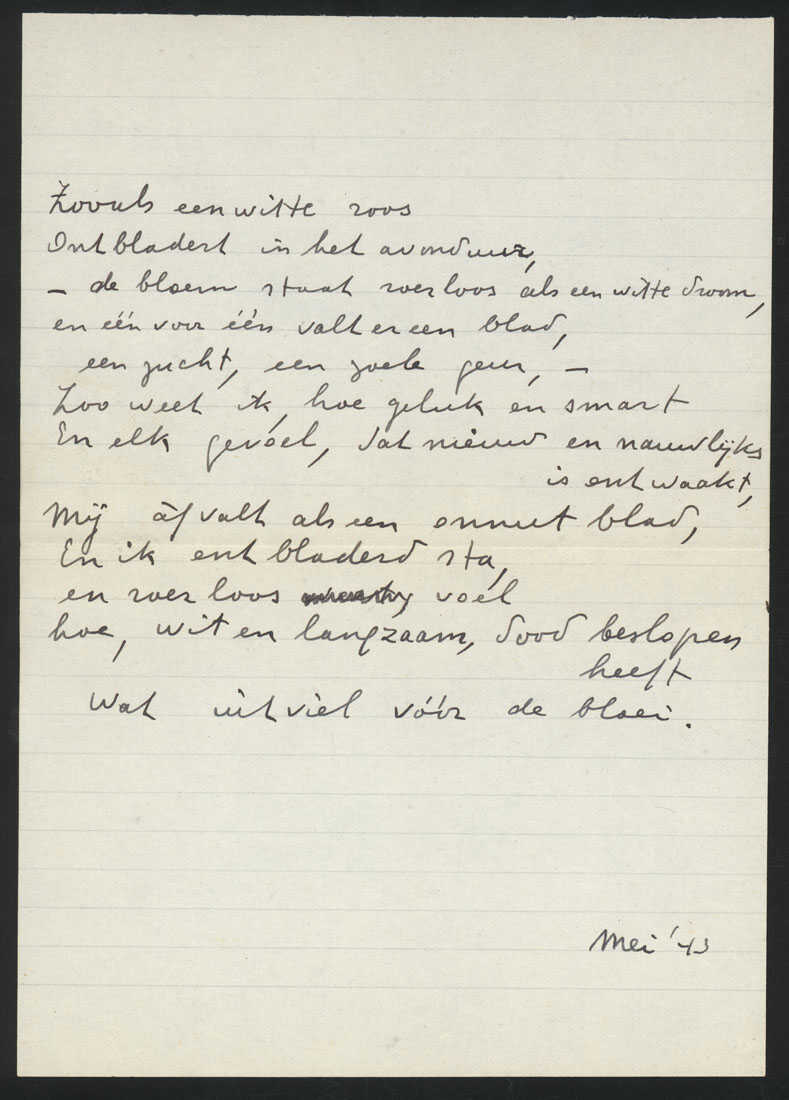 Zooals een witte roos
Ontbladert in het avonduur,
– de bloem staat roerloos als een witte droom,
en één voor één valt er een blad,
een zucht, een zoele geur, –
Zoo weet ik, hoe geluk en smart
En elk gevoel, dat nieuw en nauwlijks
is ontwaakt,
Mij àfvalt als een onnut blad,
En ik ontbladerd sta,
en roerloos voel
hoe, wit en langzaam, dood beslopen
heeft
Wat uitviel vóór de bloei.
Mei '43